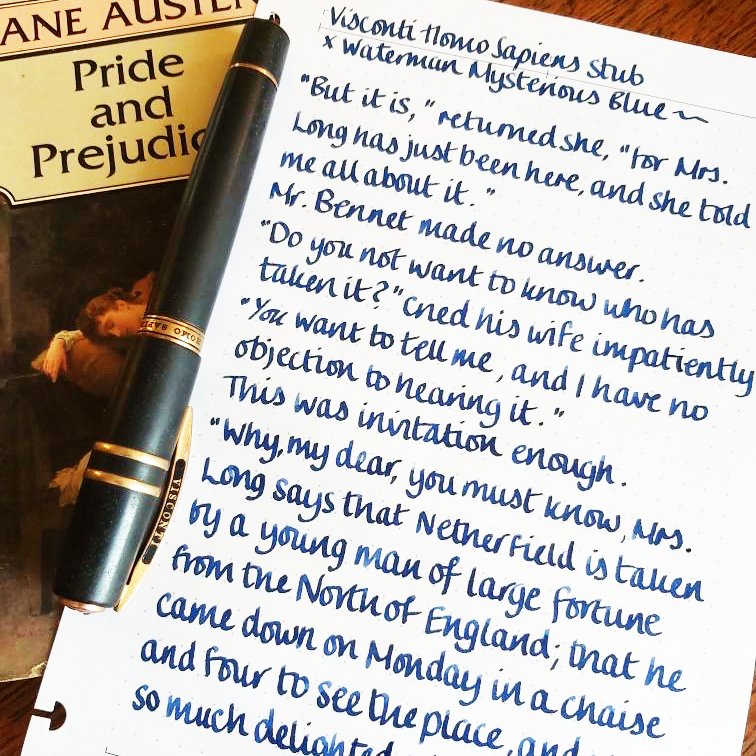 JANE AUSTEN
Pride
and
Prejudic
HOMO SAPI
VISCONTI
Visconti Homo Sapiens stub
x Waterman Mysterious Blue ~
"But it is," returned she, "for Mrs.
Long has just been here, and she told
me all about it."
Mr. Bennet made no answer.
"Do you not want to know who has
taken it?" cried his wife impatiently
"You want to tell me, and I have no
objection to hearing it."
This was invitation enough.
"Why, my dear, you must know, Mrs.
Long says that Netherfield is taken
by a young man of large fortune
from the North of England; that he
came down on Monday in a chaise
and four to see the place, and
so much delighted